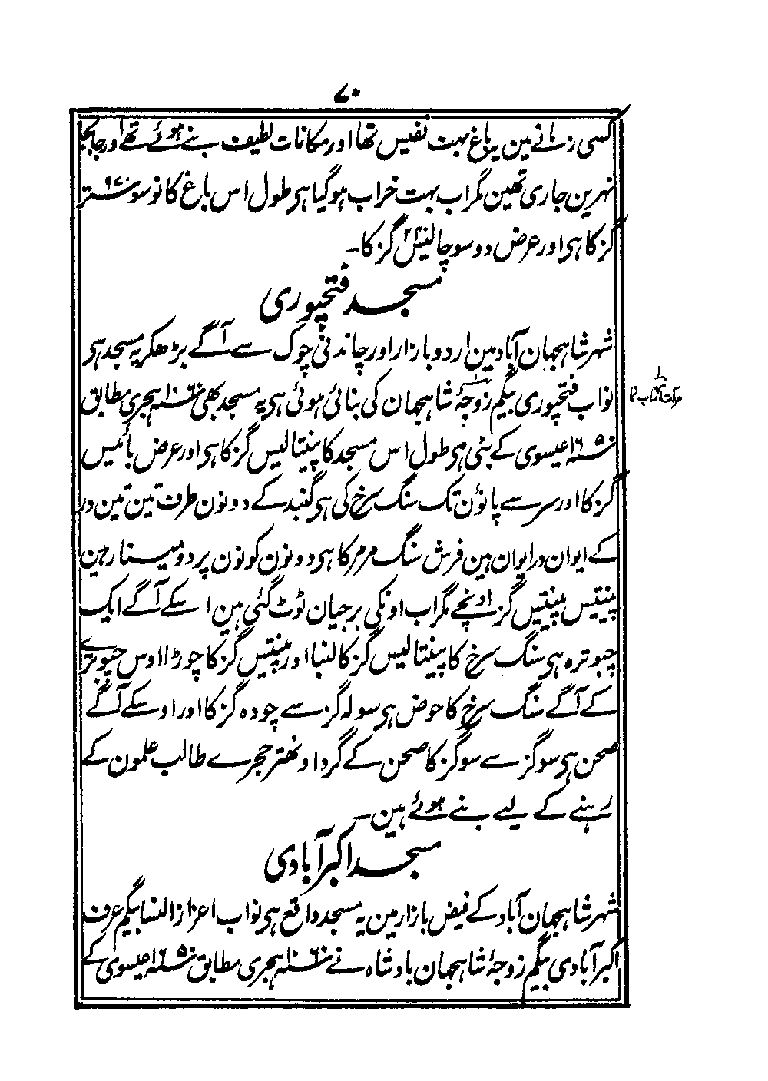 ۷۰
کسی زمانے مین یہ باغ بہت نفیس تھا اور مکانات لطیف بنے ہوئے تھے اور جابجا
نہرین جاری تھین مگر اب بہت خراب ہوگیا ہی طول اس باغ کا نو سو ستر ۹۷۰
گز کا ہی اور عرض دو سو چالیس گز کا۔
مسجد فتحپوری
شہر شاہجہان آباد مین اردو بازار اور چاندنی چوک سے آگے بڑھکر یہ مسجد ہی
نواب فتحپوری بیگم زوجۂ شاہجہان کی بنائی ہوئی ہی یہ مسجد بھی ۱۰۶۰ ہجری مطابق
۱۶۵۰ عیسوی کے بنی ہی طول اس مسجد کا پینتالیس گز کا ہی اور عرض بائیس
گز کا اور سر سے پانون تک سنگ سرخ کی ہی گنبد کے دونون طرف تین تین در
کے ایوان در ایوان ہین فرش سنگ مرمر کا ہی دونون کونون پر دو مینار ہین
پینتیس پینتیس گز اونچے مگر اب اونکی برجیان ٹوٹ گئی ہین اسکے آگے ایک
چبوترہ ہی سنگ سرخ کا پینتالیس گز کا لنبا اور پینتیس گز کا چوڑا اوس چبوترے
کے آگے سنگ سرخ کا حوض ہی سولہ گز سے چودہ گز کا اور اوسکے آگے
صحن ہی سو گز سے سو گز کا صحن کے گرد اونھتر حجرے طالب علمون کے
رہنے کے لیے بنے ہوئے ہین۔
مسجد اکبرآبادی
شہر شاہجہان آباد کے فیض بازار مین یہ مسجد واقع ہی نواب اعزاز النسا بیگم عرف
اکبرآبادی بیگم زوجۂ شاہجہان بادشاہ نے ۱۰۶۰ ہجری مطابق ۱۶۵۰ عیسوی کے